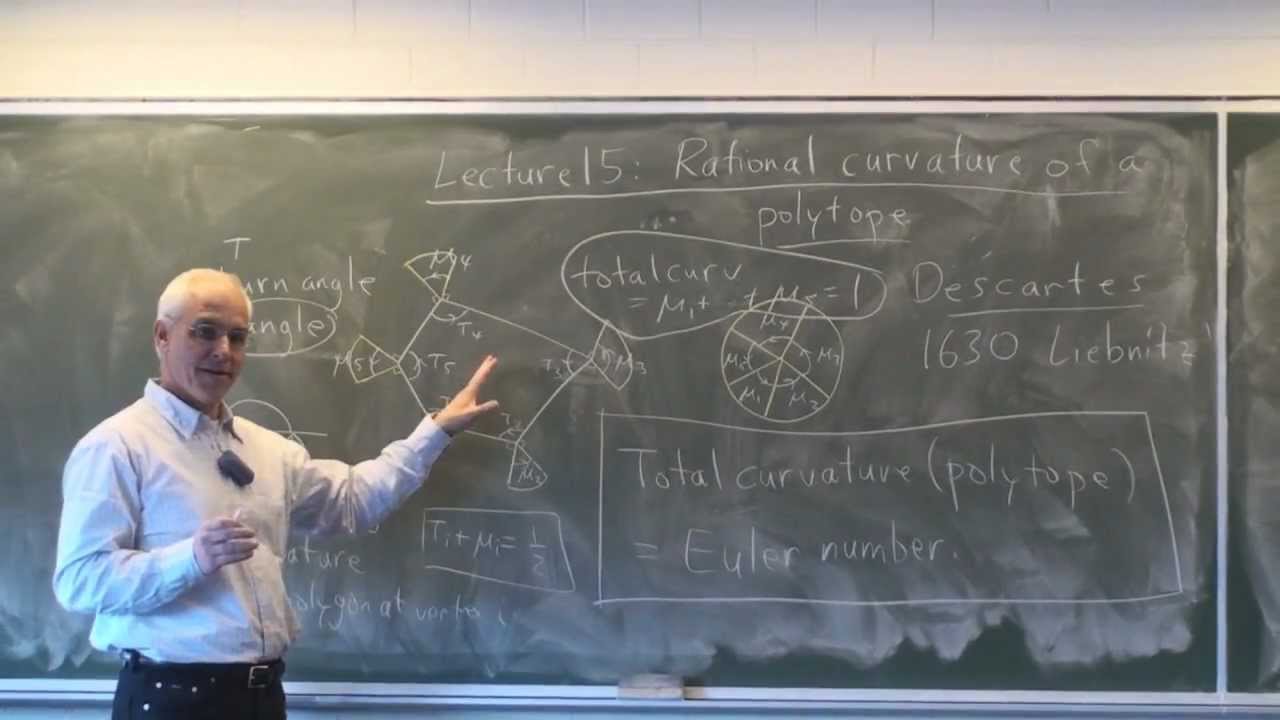 Lecture 15: Rational curvature of a
polytope
T
turn angle
angle)
μ4
T4
μ5
T5
T3
μ3
μ2
total curv
= μ1+ ... + μ5 = 1
μ4
μ5
μ3
μ1
μ2
Descartes
1630 Liebnitz
Total curvature (polytope)
= Euler number.
Ti + μi = 1/2
ature
polygon at vertex i